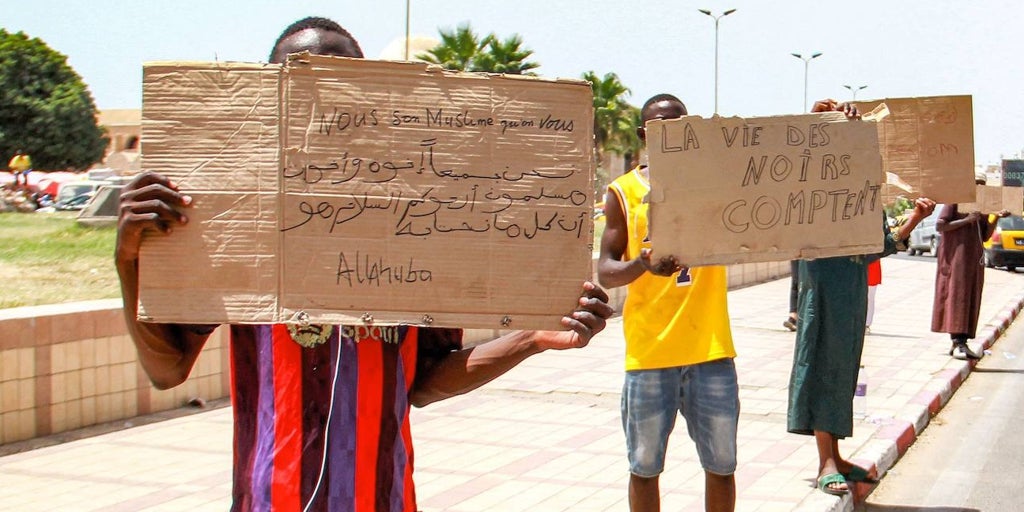 NOUS Son Muslime qu'on vous
نحن جميعاً أخوة وأخوت
السلام هو
أن كل ما نحتابه
AllAhuba
LA VIE DES
NOIRS
COMPTENT